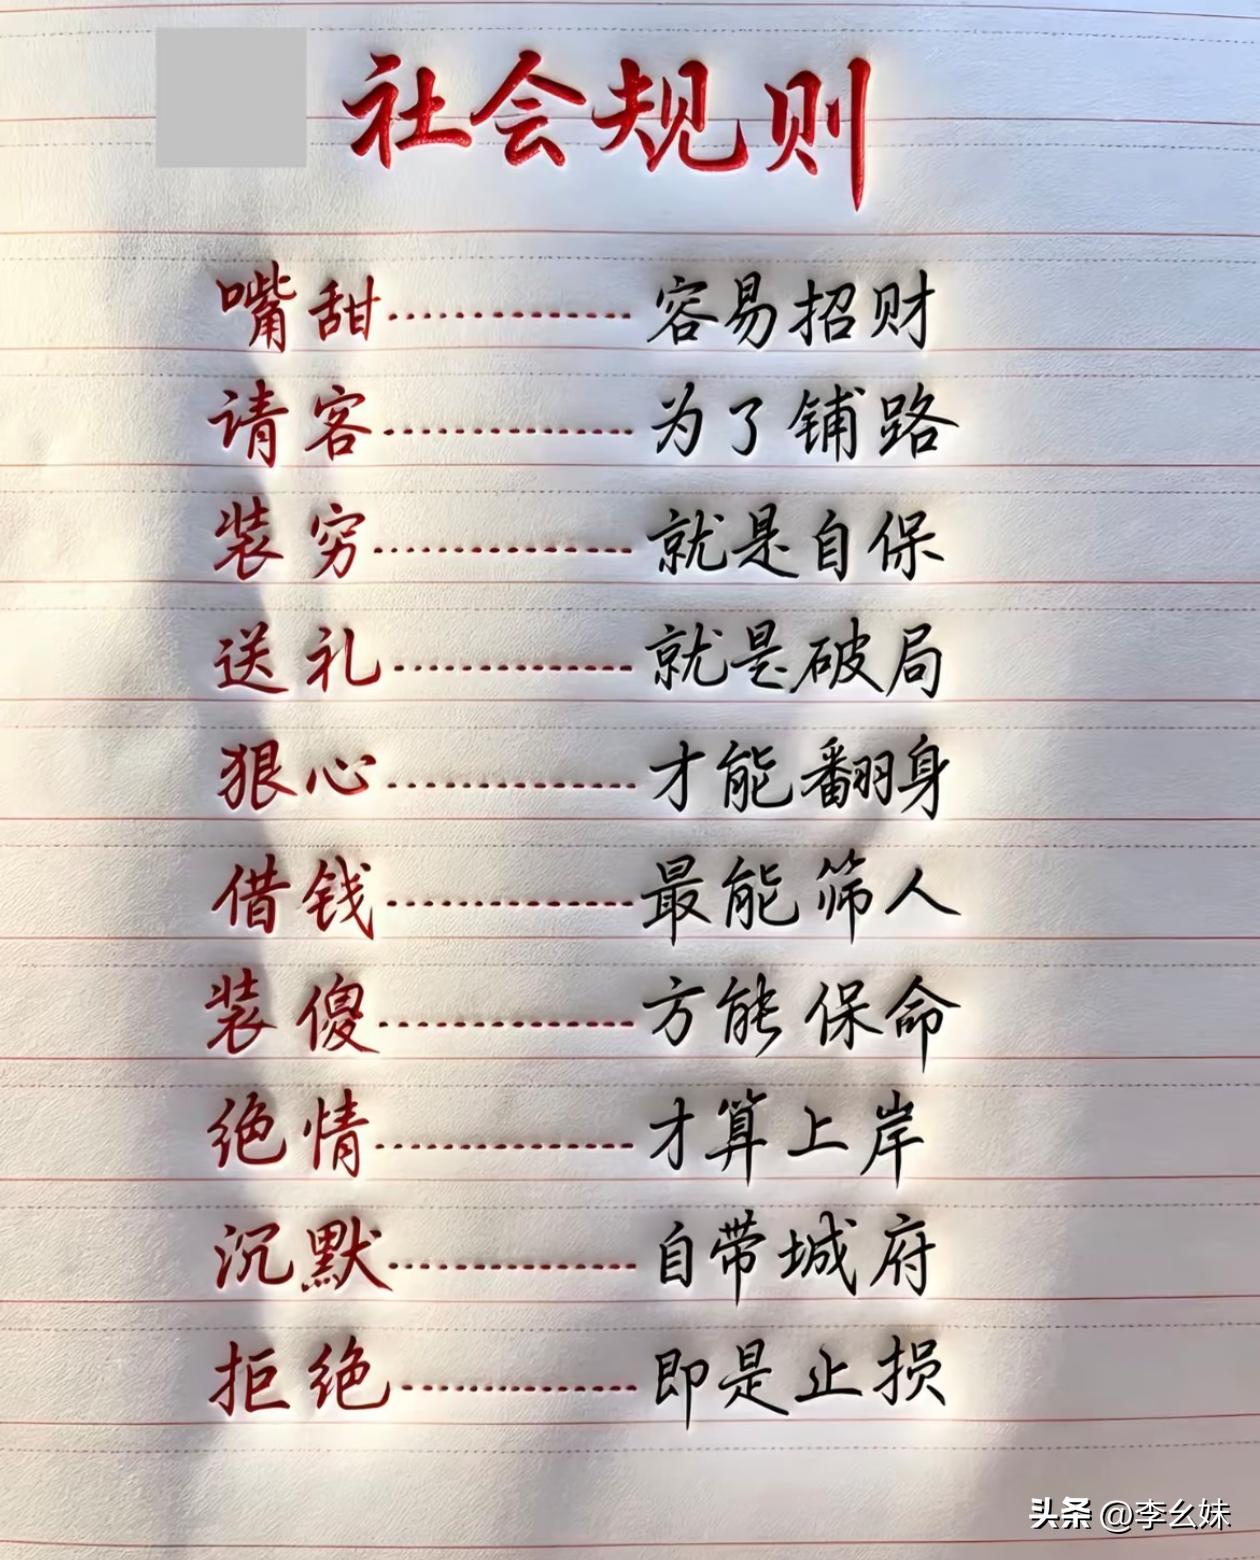 社会规则
嘴甜............容易招财
请客............为了铺路
装穷............就是自保
送礼............就是破局
狠心............才能翻身
借钱............最能筛人
装傻............方能保命
绝情............才算上岸
沉默............自带城府
拒绝............即是止损
头条 @李幺妹